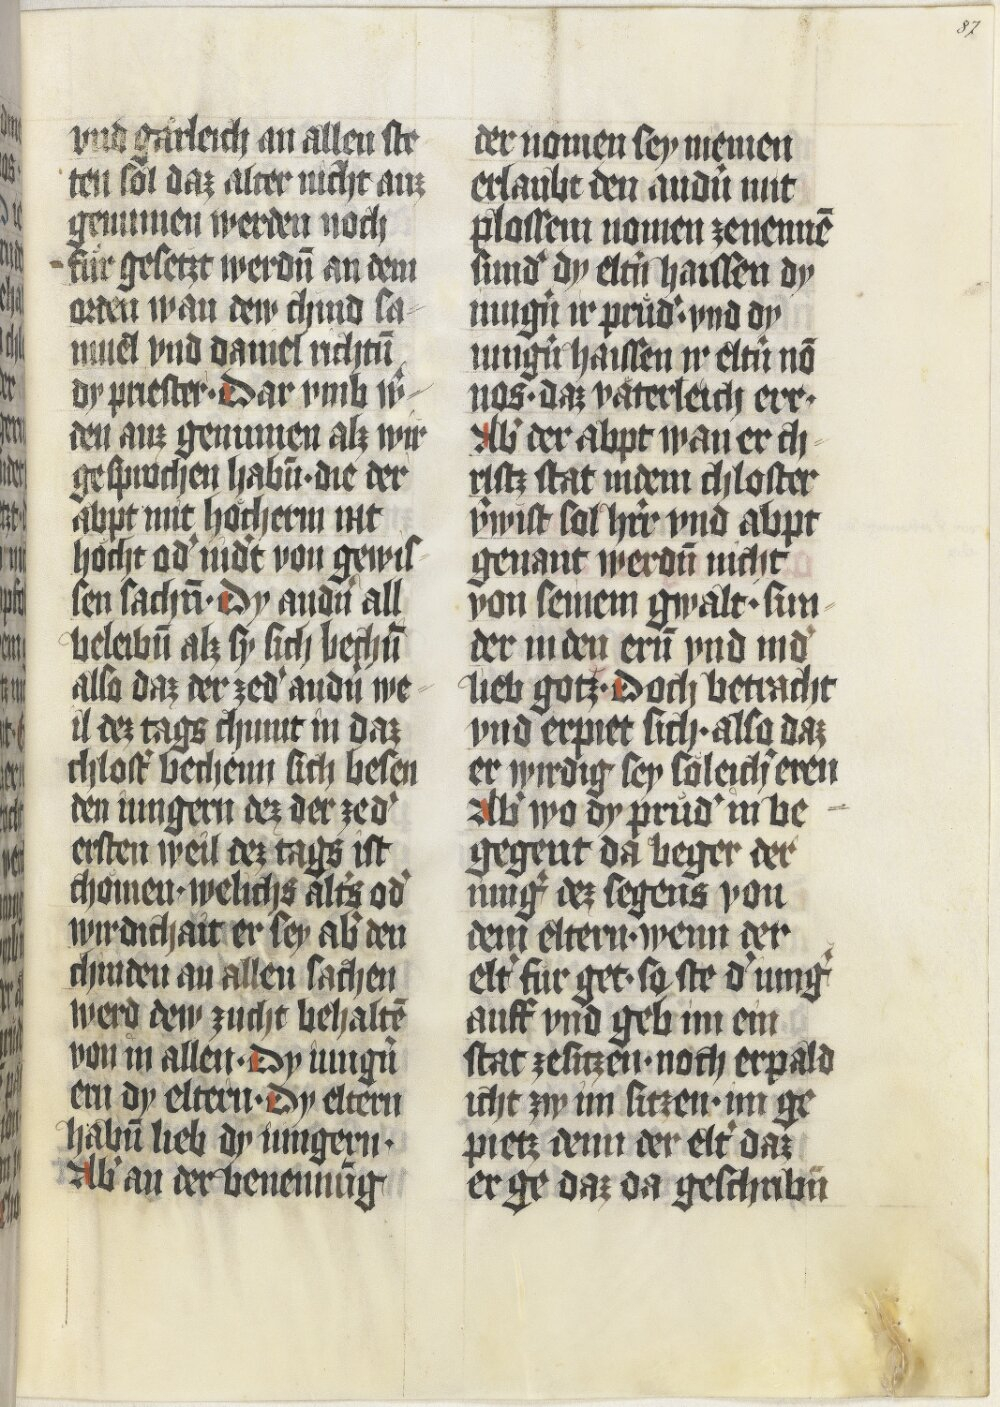 87
vnd gärleich an allen ste
ten söl daz alter nicht auz
genumen werden noch
für gesetzt werdn̄ an dem
orden wan dew chind sa-
muel vnd daniel richtn̄
dy priester· Dar vmb w̾-
den auz genumen alz wir
gesprochen habn̄· die der
abpt mit höcherm rat
höcht od̾ nid̾t von gewis-
sen sachn̄· Dy andn̄ all
beleibn̄ alz sy sich bechn̄
also daz der zed̾ andn̄ we-
il dez tags chumt in daz
chlost̾ bechenn sich besen
den iungern dez der zed̾
ersten weil dez tags ist
chömen· welichs alt̾s od̾
wirdichait er sey ab̾ den
chinden an allen sachen
werd dew zucht behaltē
von in allen· Dy iungn̄
ern dy eltern· Dy eltern
habn̄ lieb dy iungern·
Ab̾ an der benennūg
der nomen sey niemen
erlaubt den andn̄ mit
plossem nomen zenennē
sund̾ dy eltn̄ haissen dy
iungn̄ ir prüd̾· vnd dy
iungn̄ haissen ir eltn̄ nō
nos· daz väterleich err·
Ab̾ der abpt wan er ch-
ristz stat in dem chloster
v̾wist sol h̾r vnd abpt
genant werdn̄ nicht
von seinem gwalt· sun-
der in den ern̄ vnd in d̾
lieb gotz· Doch betracht
vnd erpiet sich· also daz
er wirdig sey söleich̾ eren
Ab̾ wo dy prüd̾ in be-
gegent da beger der
iung̾ dez segens von
dem eltern· wenn der
elt̾ für get· so ste d̾ iung̾
auff vnd geb im ein
stat zesitzen· noch erpald
icht zw im sitzen· im ge
pietz denn der elt̾ daz
er ge daz da geschribn̄